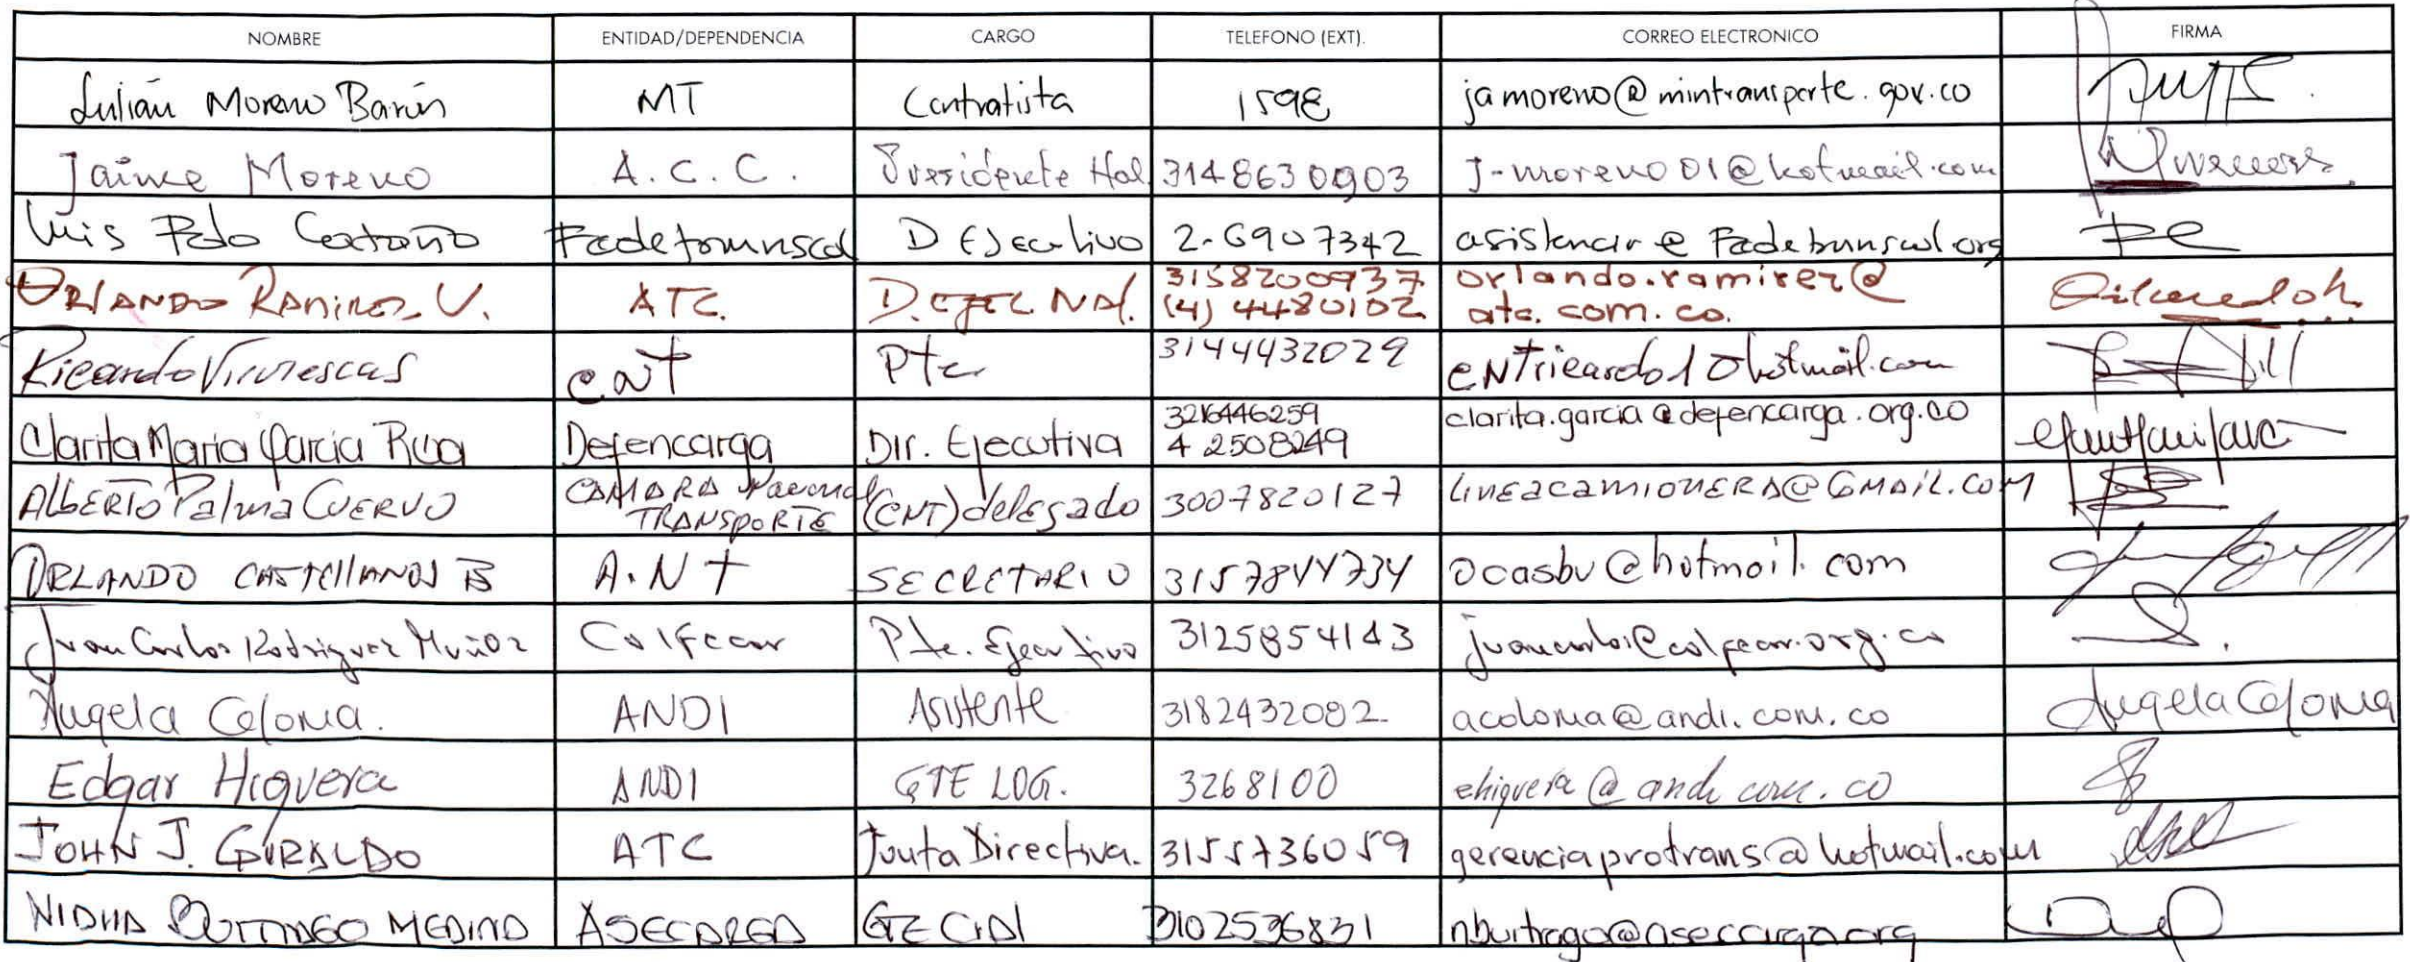 NOMBRE ENTIDAD/DEPENDENCIA CARGO TELEFONO (EXT). CORREO ELECTRONICO FIRMA
Julián Moreno Barón MT Contratista 1598 jamoreno@mintransporte.gov.co
Jaime Moreno A.C.C. Presidente Nal 3148630903 j-moreno01@hotmail.com
Luis D Ejecutivo 2-6907342
ORLANDO RAMIREZ V. ATC. D. EJEC NAL. 3158200937 orlando.ramirez@
(4) 4480102 atc.com.co.
Ricardo Virviescas CNT Pte 3144432029 CNTricardo1@hotmail.com
Clarita Maria Garcia Rua Defencarga Dir. Ejecutiva 3216446259 clarita.garcia@defencarga.org.co
4 2508249
ALBERTO Palma CUERVO CAMARA Nacional (CNT) delegado 3007820127 LINEACAMIONERA@GMAIL.COM
TRANSPORTE
ORLANDO CASTELLANOS B A.N.T SECRETARIO 3157844734 ocasbu@hotmail.com
Juan Carlos Rodriguez Muñoz Colfecar Pte. Ejecutivo 3125854143 juancarlos@colfecar.org.co
Angela Coloma. ANDI Asistente 3182432082 acoloma@andi.com.co Angela Coloma
Edgar Higuera ANDI GTE LOG. 3268100 ehiguera@andi.com.co
JOHN J. GIRALDO ATC Junta Directiva. 3155736059 gerenciaprotrans@hotmail.com
NIDIA BUITRAGO MEDINA ASECARGA 3102536831 nbuitrago@asecarga.org